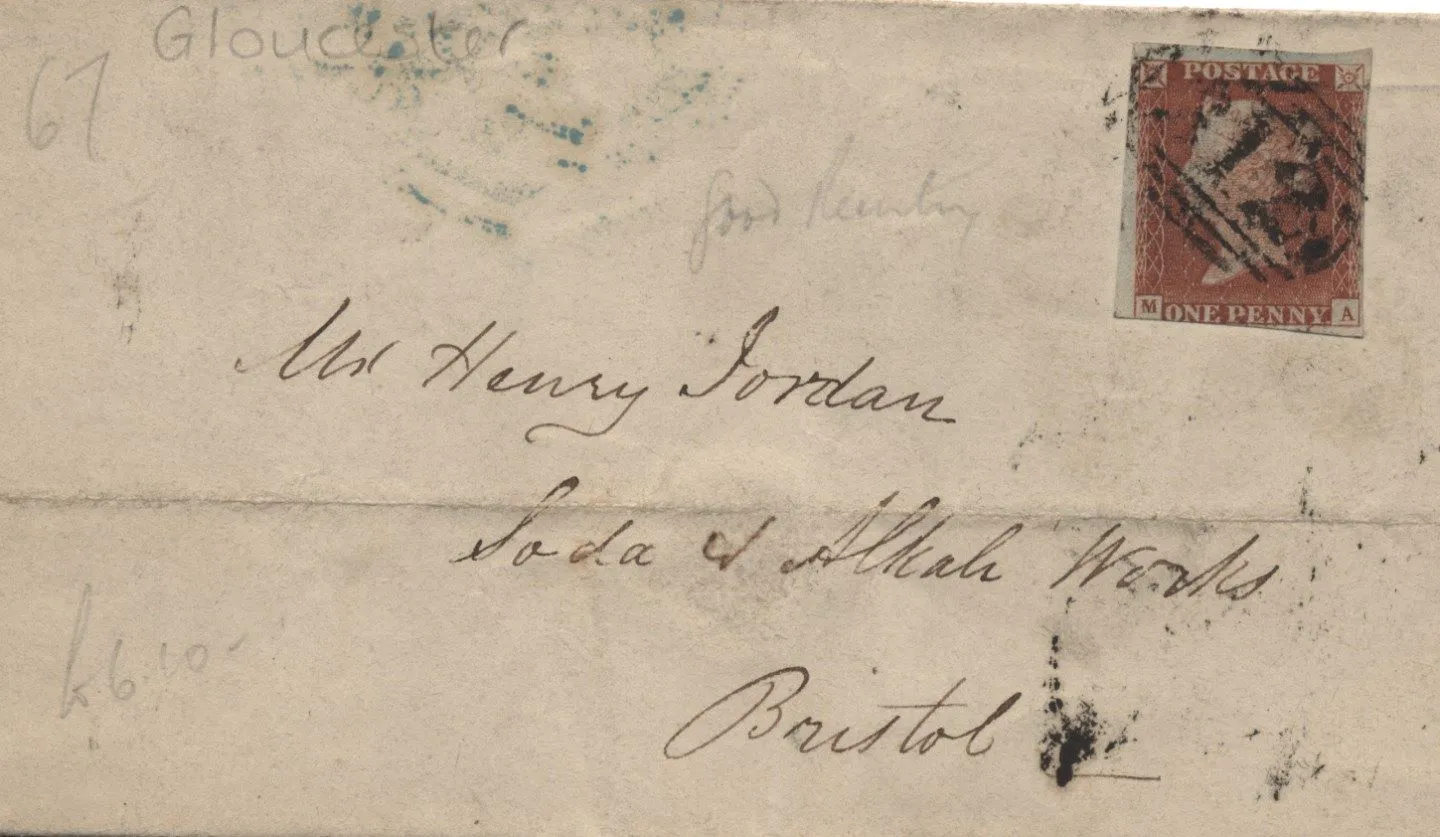 Gloucester
67
good
POSTAGE
M ONE PENNY A
Mr Henry Jordan
Soda & Alkali Works
Bristol
£6.10-